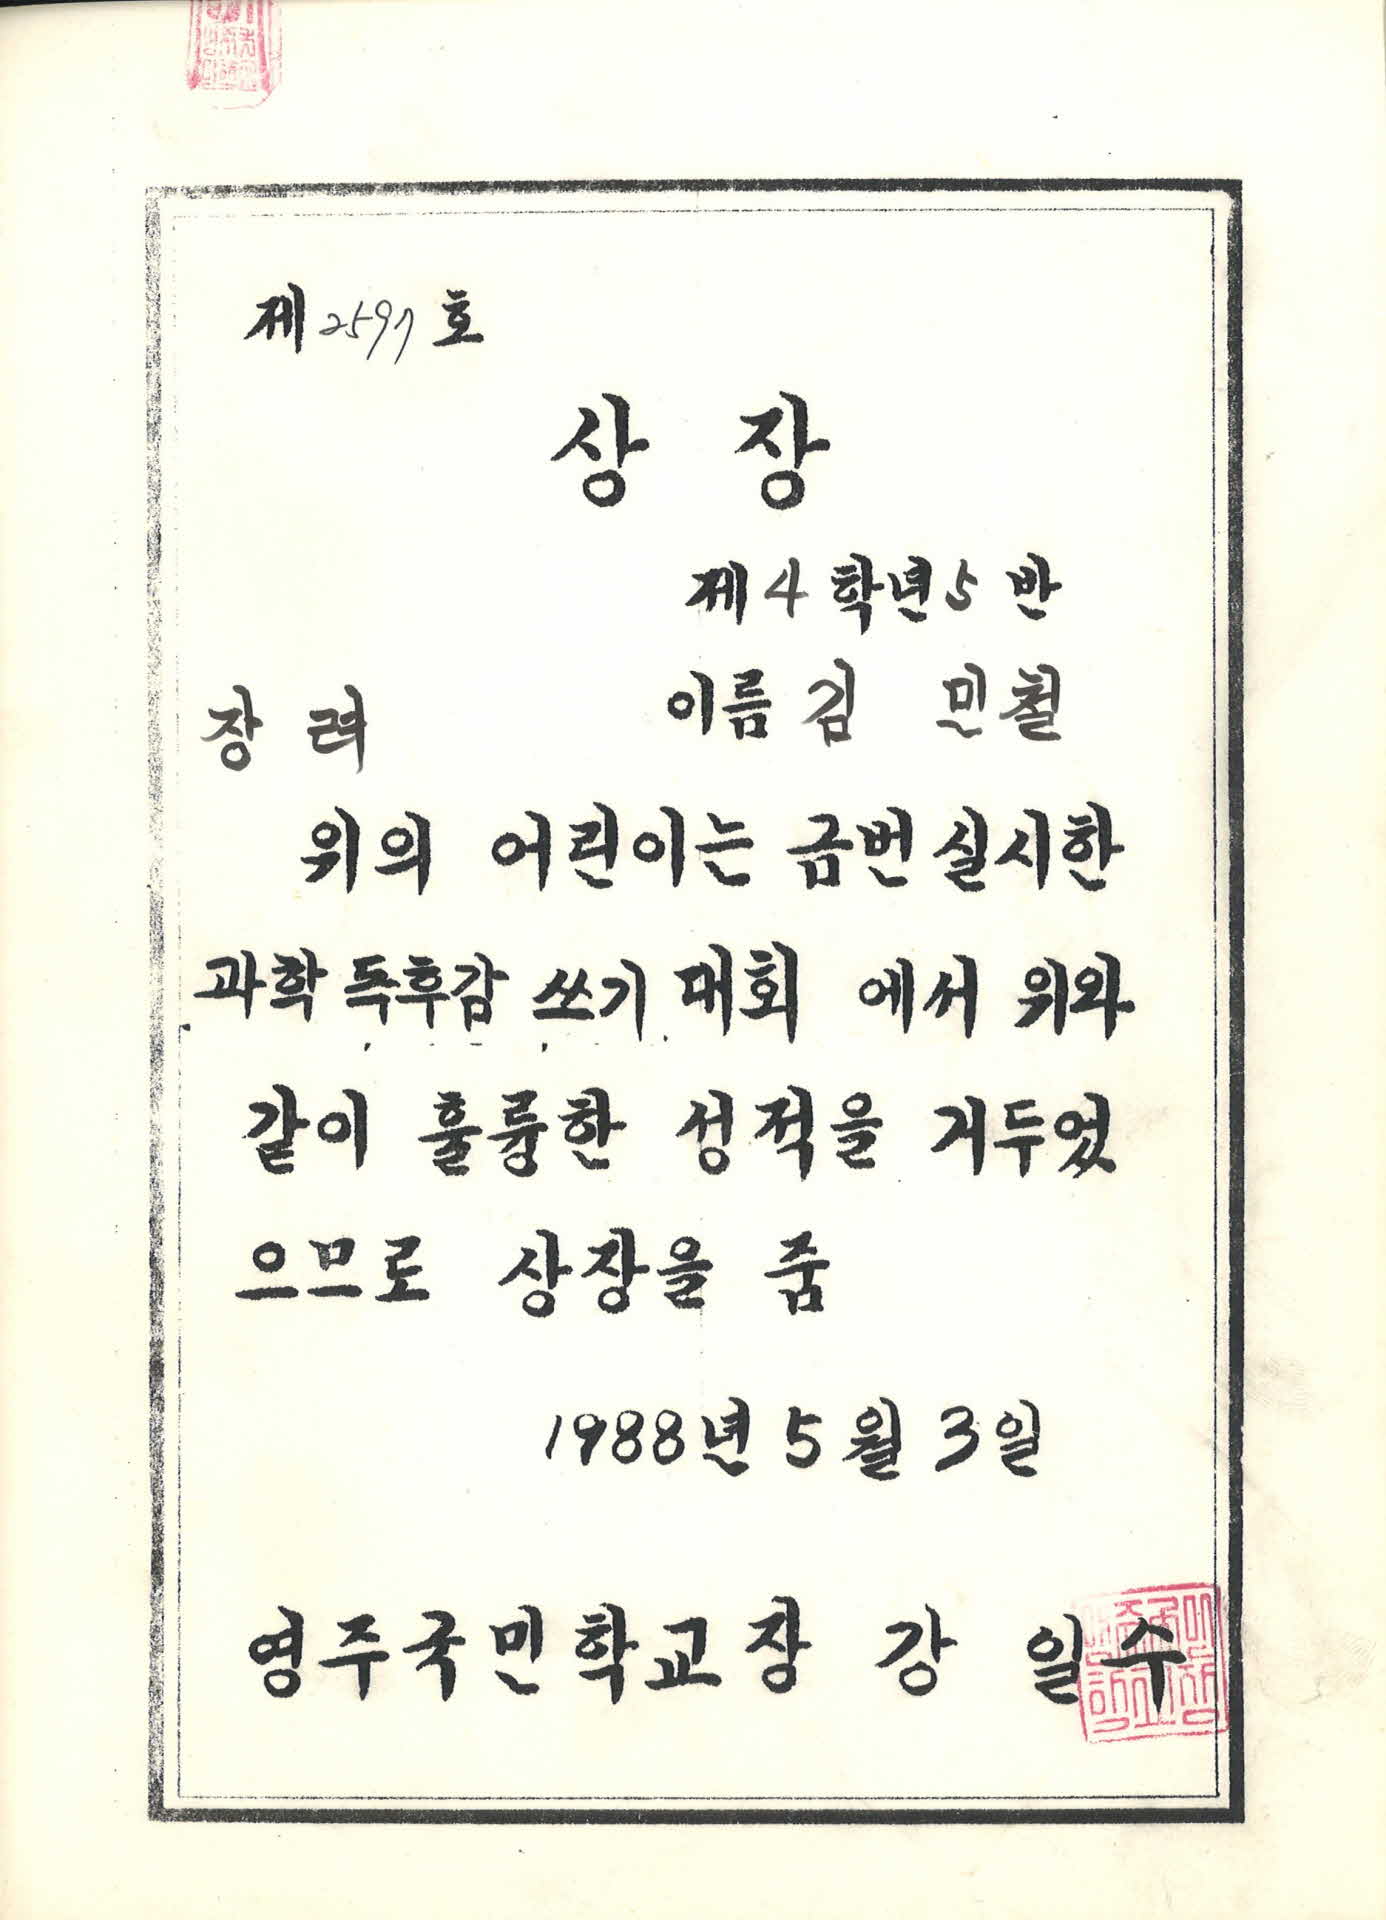 제 2597 호
상 장
제 4 학년 5 반
이름 김 민철
장 려
위의 어린이는 금번 실시한
과학 독후감 쓰기 대회 에서 위와
같이 훌륭한 성적을 거두었
으므로 상장을 줌
1988년 5월 3일
영주국민학교장 강 일수